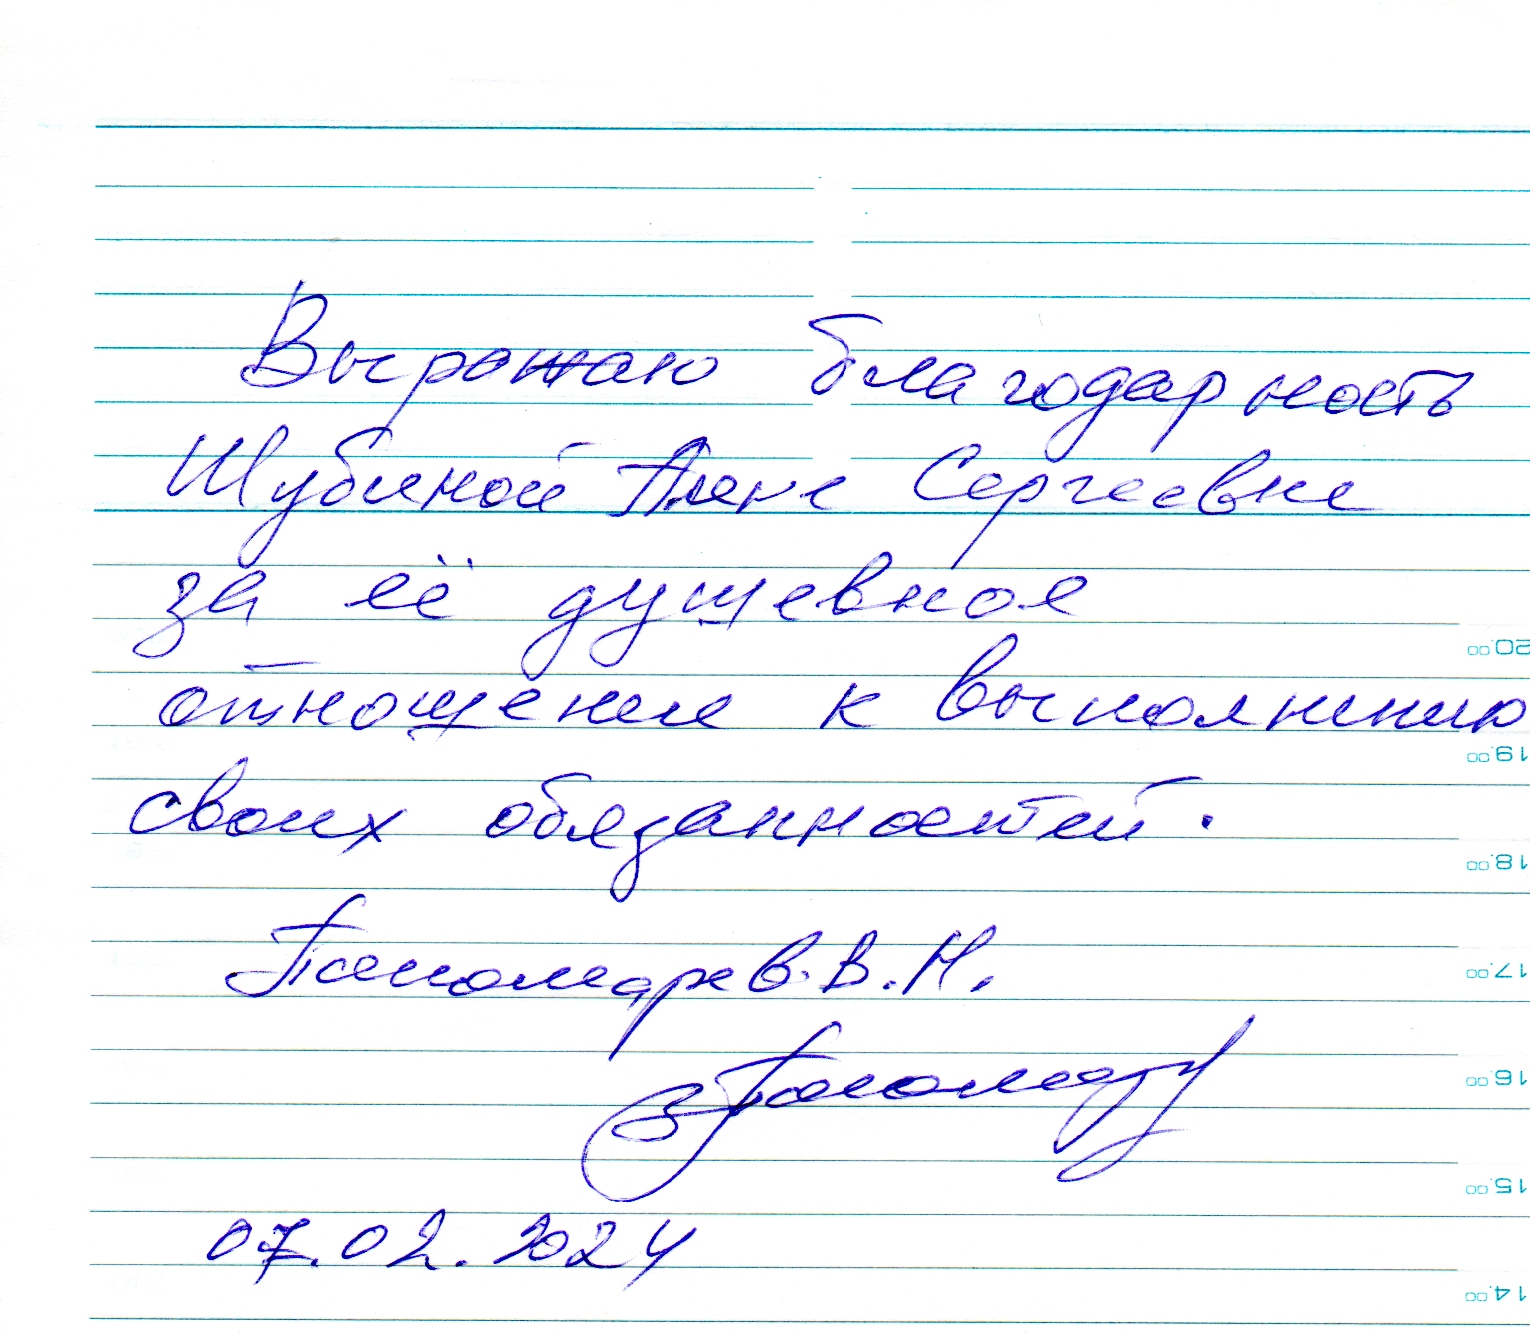 Выражаю благодарность
Шубиной Алене Сергеевне
за её душевное
отношение к выполнению
своих обязанностей.
Пономарев В.Н.
07.02.2024
20.00
19.00
18.00
17.00
16.00
15.00
14.00